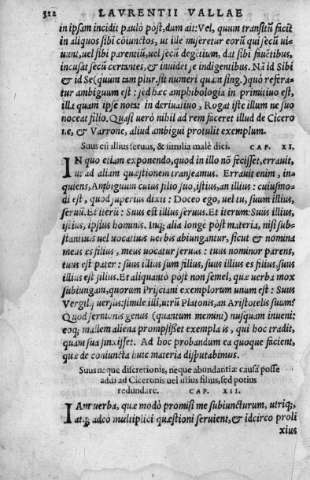 312 LAVRENTII VALLAE
in ipsam incidit paulò pòst, dum ait: Vel, quum transitũ facit
in aliquos sibi coiunctos, ut ille miseretur eorũ qui secũ ui-
uunt, uel sibi parentiũ, uel secũ degentium, dat sibi fauētibus,
incusat secũ certantes, & inuidet se indigentibus. Nã id Sibi
& id Se (quum tam plur. sit numeri quàm sing.) quò refera-
tur ambiguum est: sed hæc amphibologia in primitiuo est,
illa quam ipse notat in deriuatiuo, Rogat iste illum ne suo
noceat filio. Quasi uerò nihil ad rem faceret illud de Cicero
ne, & Varrone, aliud ambigui protulit exemplum.
Suus est illius seruus, & similia malè dici. CAP. XI.
IN quo etiam exponendo, quod in illo nõ fecisset, errauit,
ut ad aliam quæstionem transeamus. Errauit enim, in-
quiens, Ambiguum cuius filio suo, istius, an illius: cuiusmo-
di est, quod superius dixi: Doceo ego, uel tu, suum illius,
seruũ. Et iterũ: Suus est illius seruus. Et iterum: Suus illius,
istius, ipsius hominis. Inq́; alia longè pòst materia, nisi sub-
stantiua uel uocatiuis uerbis abiungantur, sicut & nomina
meus es filius, meus uocatur seruus: tuus nominor parens,
tuus est pater: suus illius sum filius, suus illius es filius, suus
illius est filius. Et aliquantò pòst non semel, quæ uerba mox
subiungam, quorum Prisciani exemplorum unum est: Suus
Vergilij uersus: simile illi, utrũ Platonis, an Aristotelis suum?
Quod sermonis genus (quantum memini) nusquam inueni:
eoq́; mallem aliena prompsisset exempla is, qui hoc tradit,
quàm sua finxisset. Ad hoc probandum ea quoque facient,
quæ de coniuncta huic materia disputabimus.
Suus neque discretionis, neque abundantiæ causa posse
addi ad Ciceronis uel illius filius, sed potius
redundare. CAP. XII.
IAm uerba, quæ modò promisi me subiuncturum, utriq́;,
atq́; adeò multiplici quæstioni seruient, & idcirco proli
xius